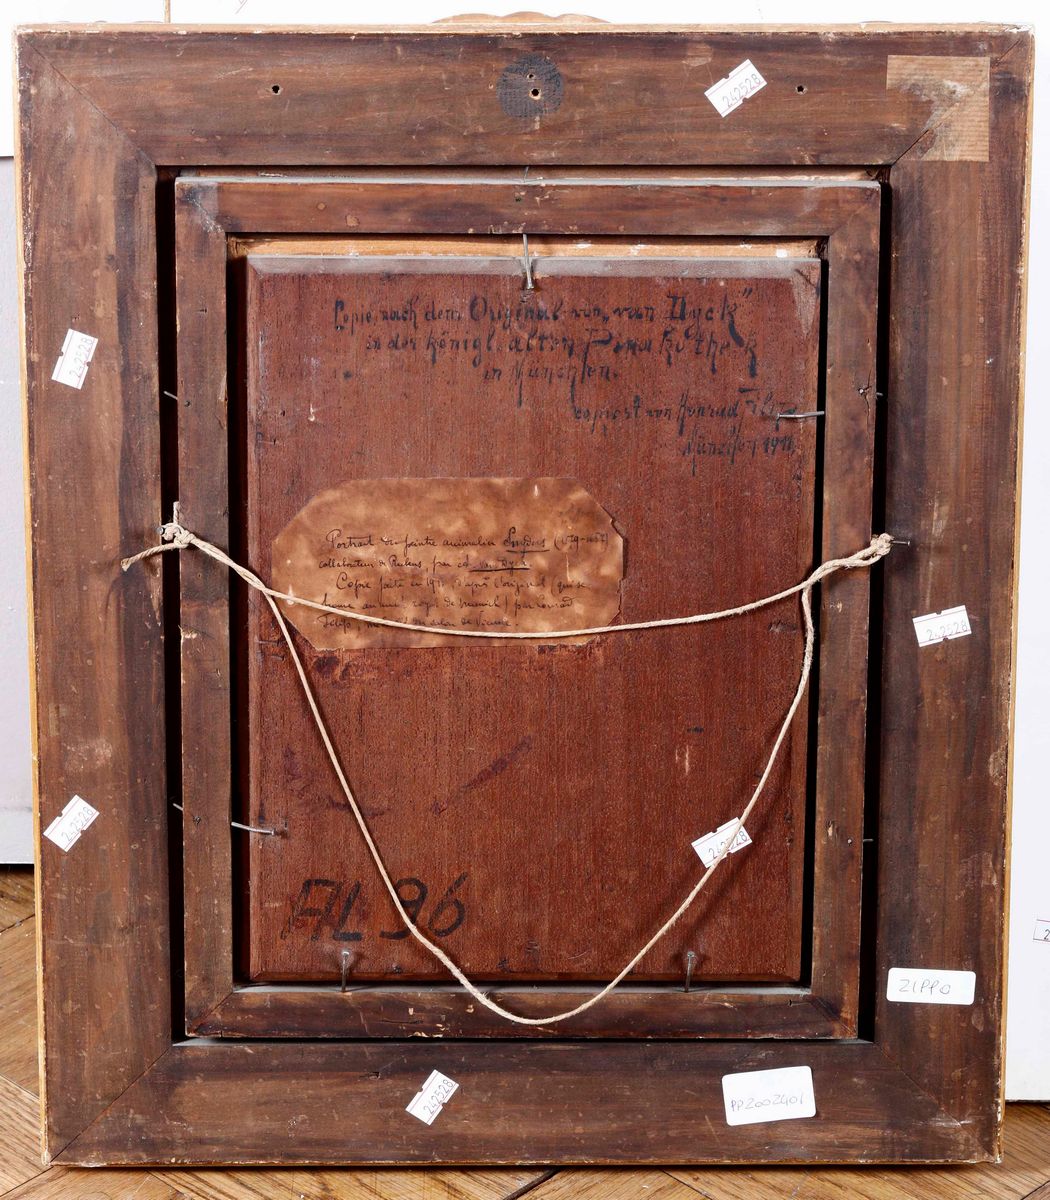 242528
Copie, nach dem Original von „van Dyck"
in der königl. alten Pinakothek
in München.
copiert von Konrad
München 1911.
242528
Portrait du peintre animalier Snyders (1579-1657)
collaborateur de Rubens, par van Dyck
Copie faite en 1911 d'après l'original (qui se
trouve au musée royal de Munich) par Conrad
salon de Vienne.
242528
242528
242528
AL 96
ZIPPO
242528
PP2002401
2